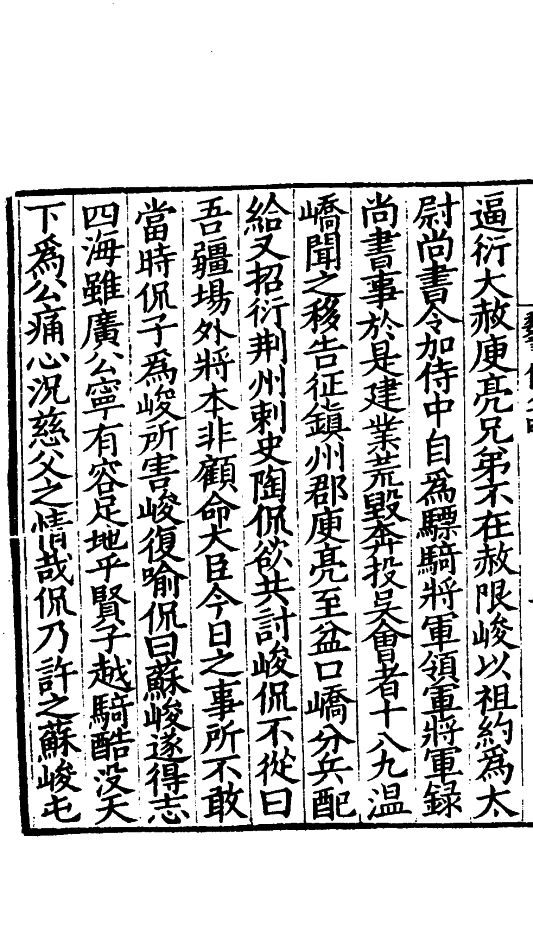 逼衍大赦庾亮兄弟不在赦限峻以祖約爲太
尉尚書令加侍中自爲驃騎將軍領軍將軍録
尚書事於是建業荒毀奔投吳會者十八九温
嶠聞之移告征鎮州郡庾亮至盆口嶠分兵配
給又招衍荆州刺史陶侃欲共討峻侃不從曰
吾疆場外將本非顧命大臣今日之事所不敢
當時侃子爲峻所害嶠復喻侃曰蘇峻遂得志
四海雖廣公寧有容足地乎賢子越騎酷没天
下爲公痛心況慈父之情哉侃乃許之蘇峻屯